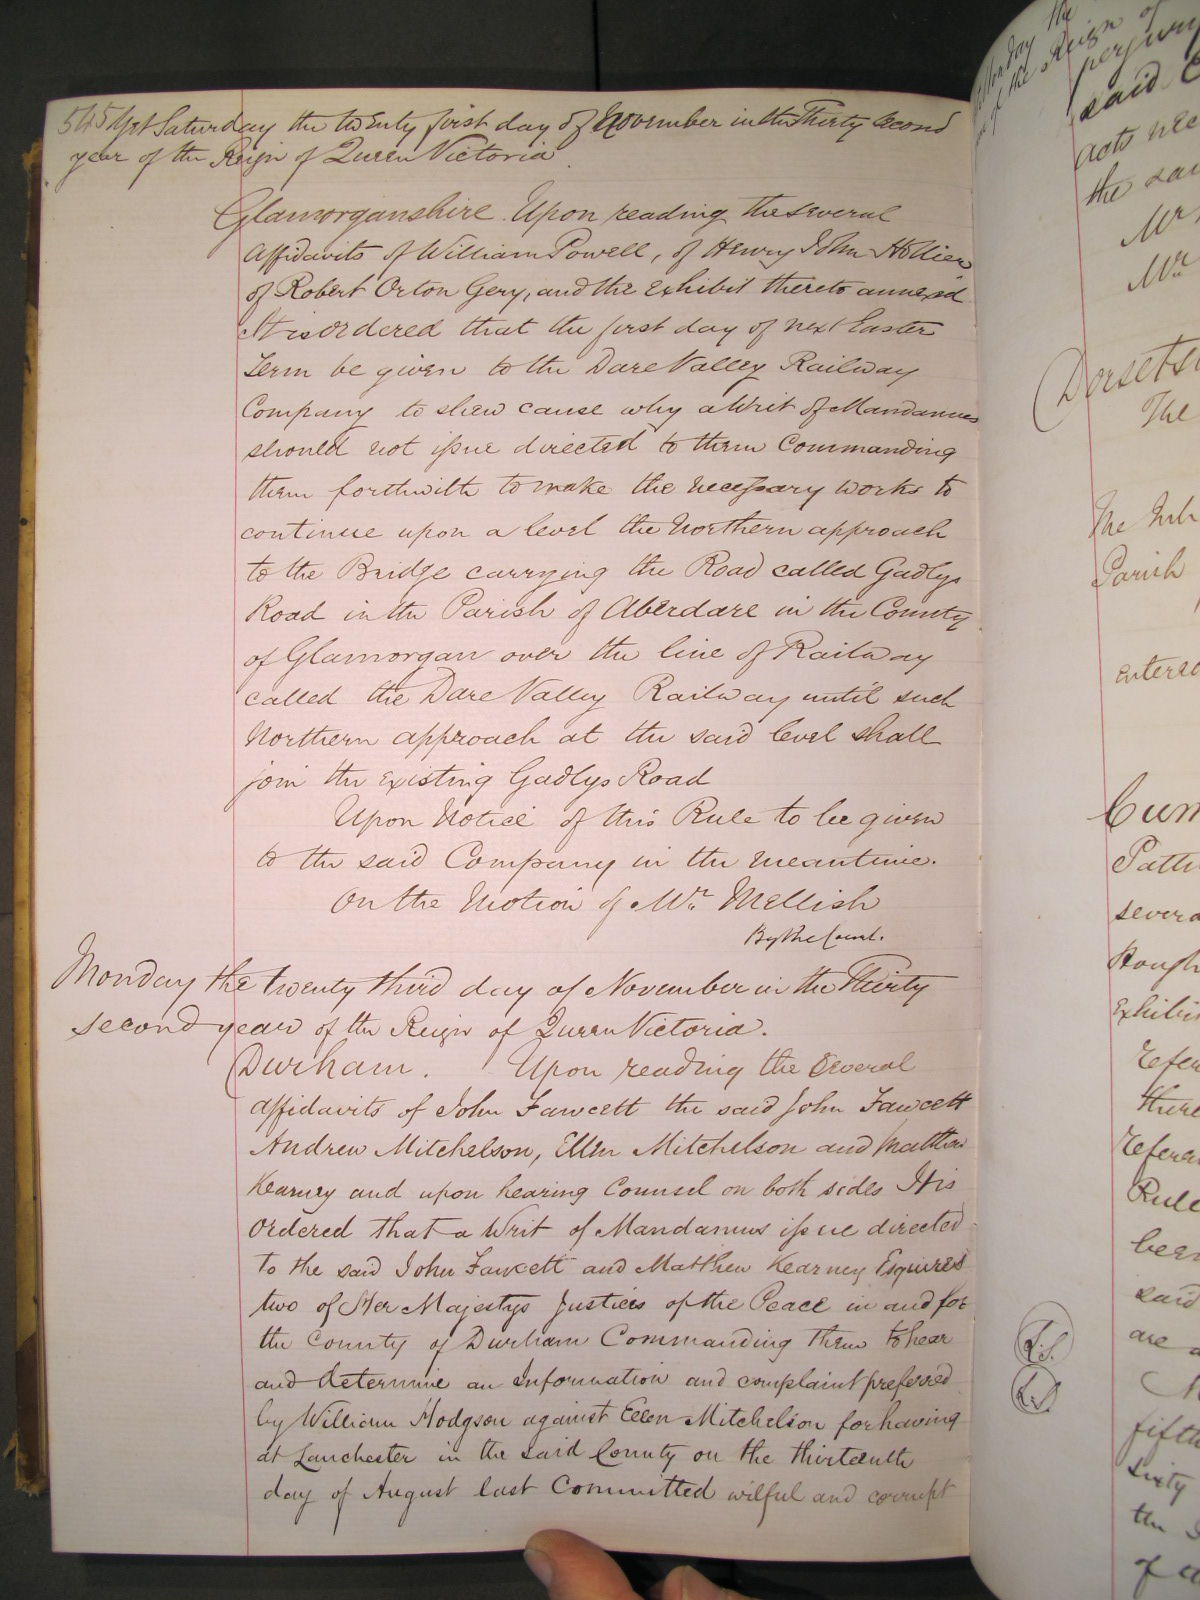 545 Yet Saturday the twenty first day of November in the Thirty second
year of the Reign of Queen Victoria
Glamorganshire. Upon reading the several
Affidavits of William Powell, of Henry John Hollier
of Robert Orton Gery, and the Exhibit thereto annexed
It is ordered that the first day of next Easter
Term be given to the Dare Valley Railway
Company to shew cause why a Writ of Mandamus
should not issue directed to them Commanding
them forthwith to make the necessary works to
continue upon a level the Northern approach
to the Bridge carrying the Road called Gadlys
Road in the Parish of Aberdare in the County
of Glamorgan over the line of Railway
called the Dare Valley Railway until such
Northern approach at the said level shall
join the existing Gadlys Road
Upon Notice of this Rule to be given
to the said Company in the meantime.
On the Motion of Mr. Mellish
By the Court.
Monday the twenty third day of November in the Thirty
second year of the Reign of Queen Victoria.
Durham. Upon reading the several
affidavits of John Fawcett the said John Fawcett
Andrew Mitchelson, Ellen Mitchelson and Matthew
Kearney and upon hearing Counsel on both sides It is
ordered that a Writ of Mandamus issue directed
to the said John Fawcett and Matthew Kearney Esquires
two of Her Majestys Justices of the Peace in and for
the County of Durham Commanding them to hear
and determine an information and complaint preferred
by William Hodgson against Ellen Mitchelson for having
at Lanchester in the said County on the thirteenth
day of August last Committed wilful and corrupt
Monday the
of the Reign of
perjury
said
acts nec
the sai
Mr
Mr
Dorsetsh
The
The Inh
Parish
entered
Cum
severa
Hough
Exhibi
refer
there
referen
Rule
been
said
are a
fifth
sixty
the
of